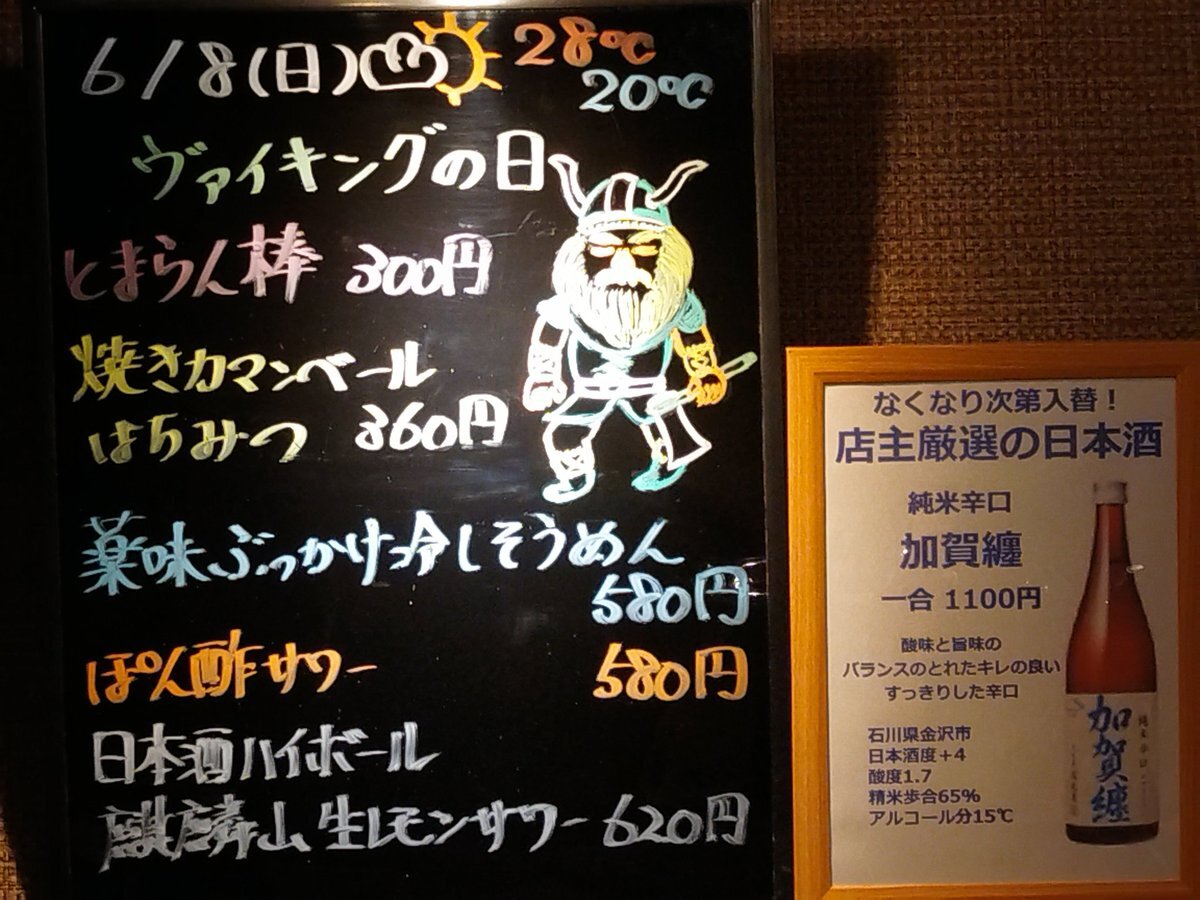 6/8(日) 28℃
20℃
ヴァイキングの日
とまらん棒 300円
焼きカマンベール
はちみつ 360円
薬味ぶっかけっ冷しそうめん
580円
ぽん酢サワー 580円
日本酒ハイボール
麒麟山生レモンサワー 620円
なくなり次第入替!
店主厳選の日本酒
純米辛口
加賀纏
一合 1100円
酸味と旨味の
バランスのとれたキレの良い
すっきりした辛口
石川県金沢市
日本酒度+4
酸度1.7
精米歩合65%
アルコール分15℃
加賀纏
純米辛口